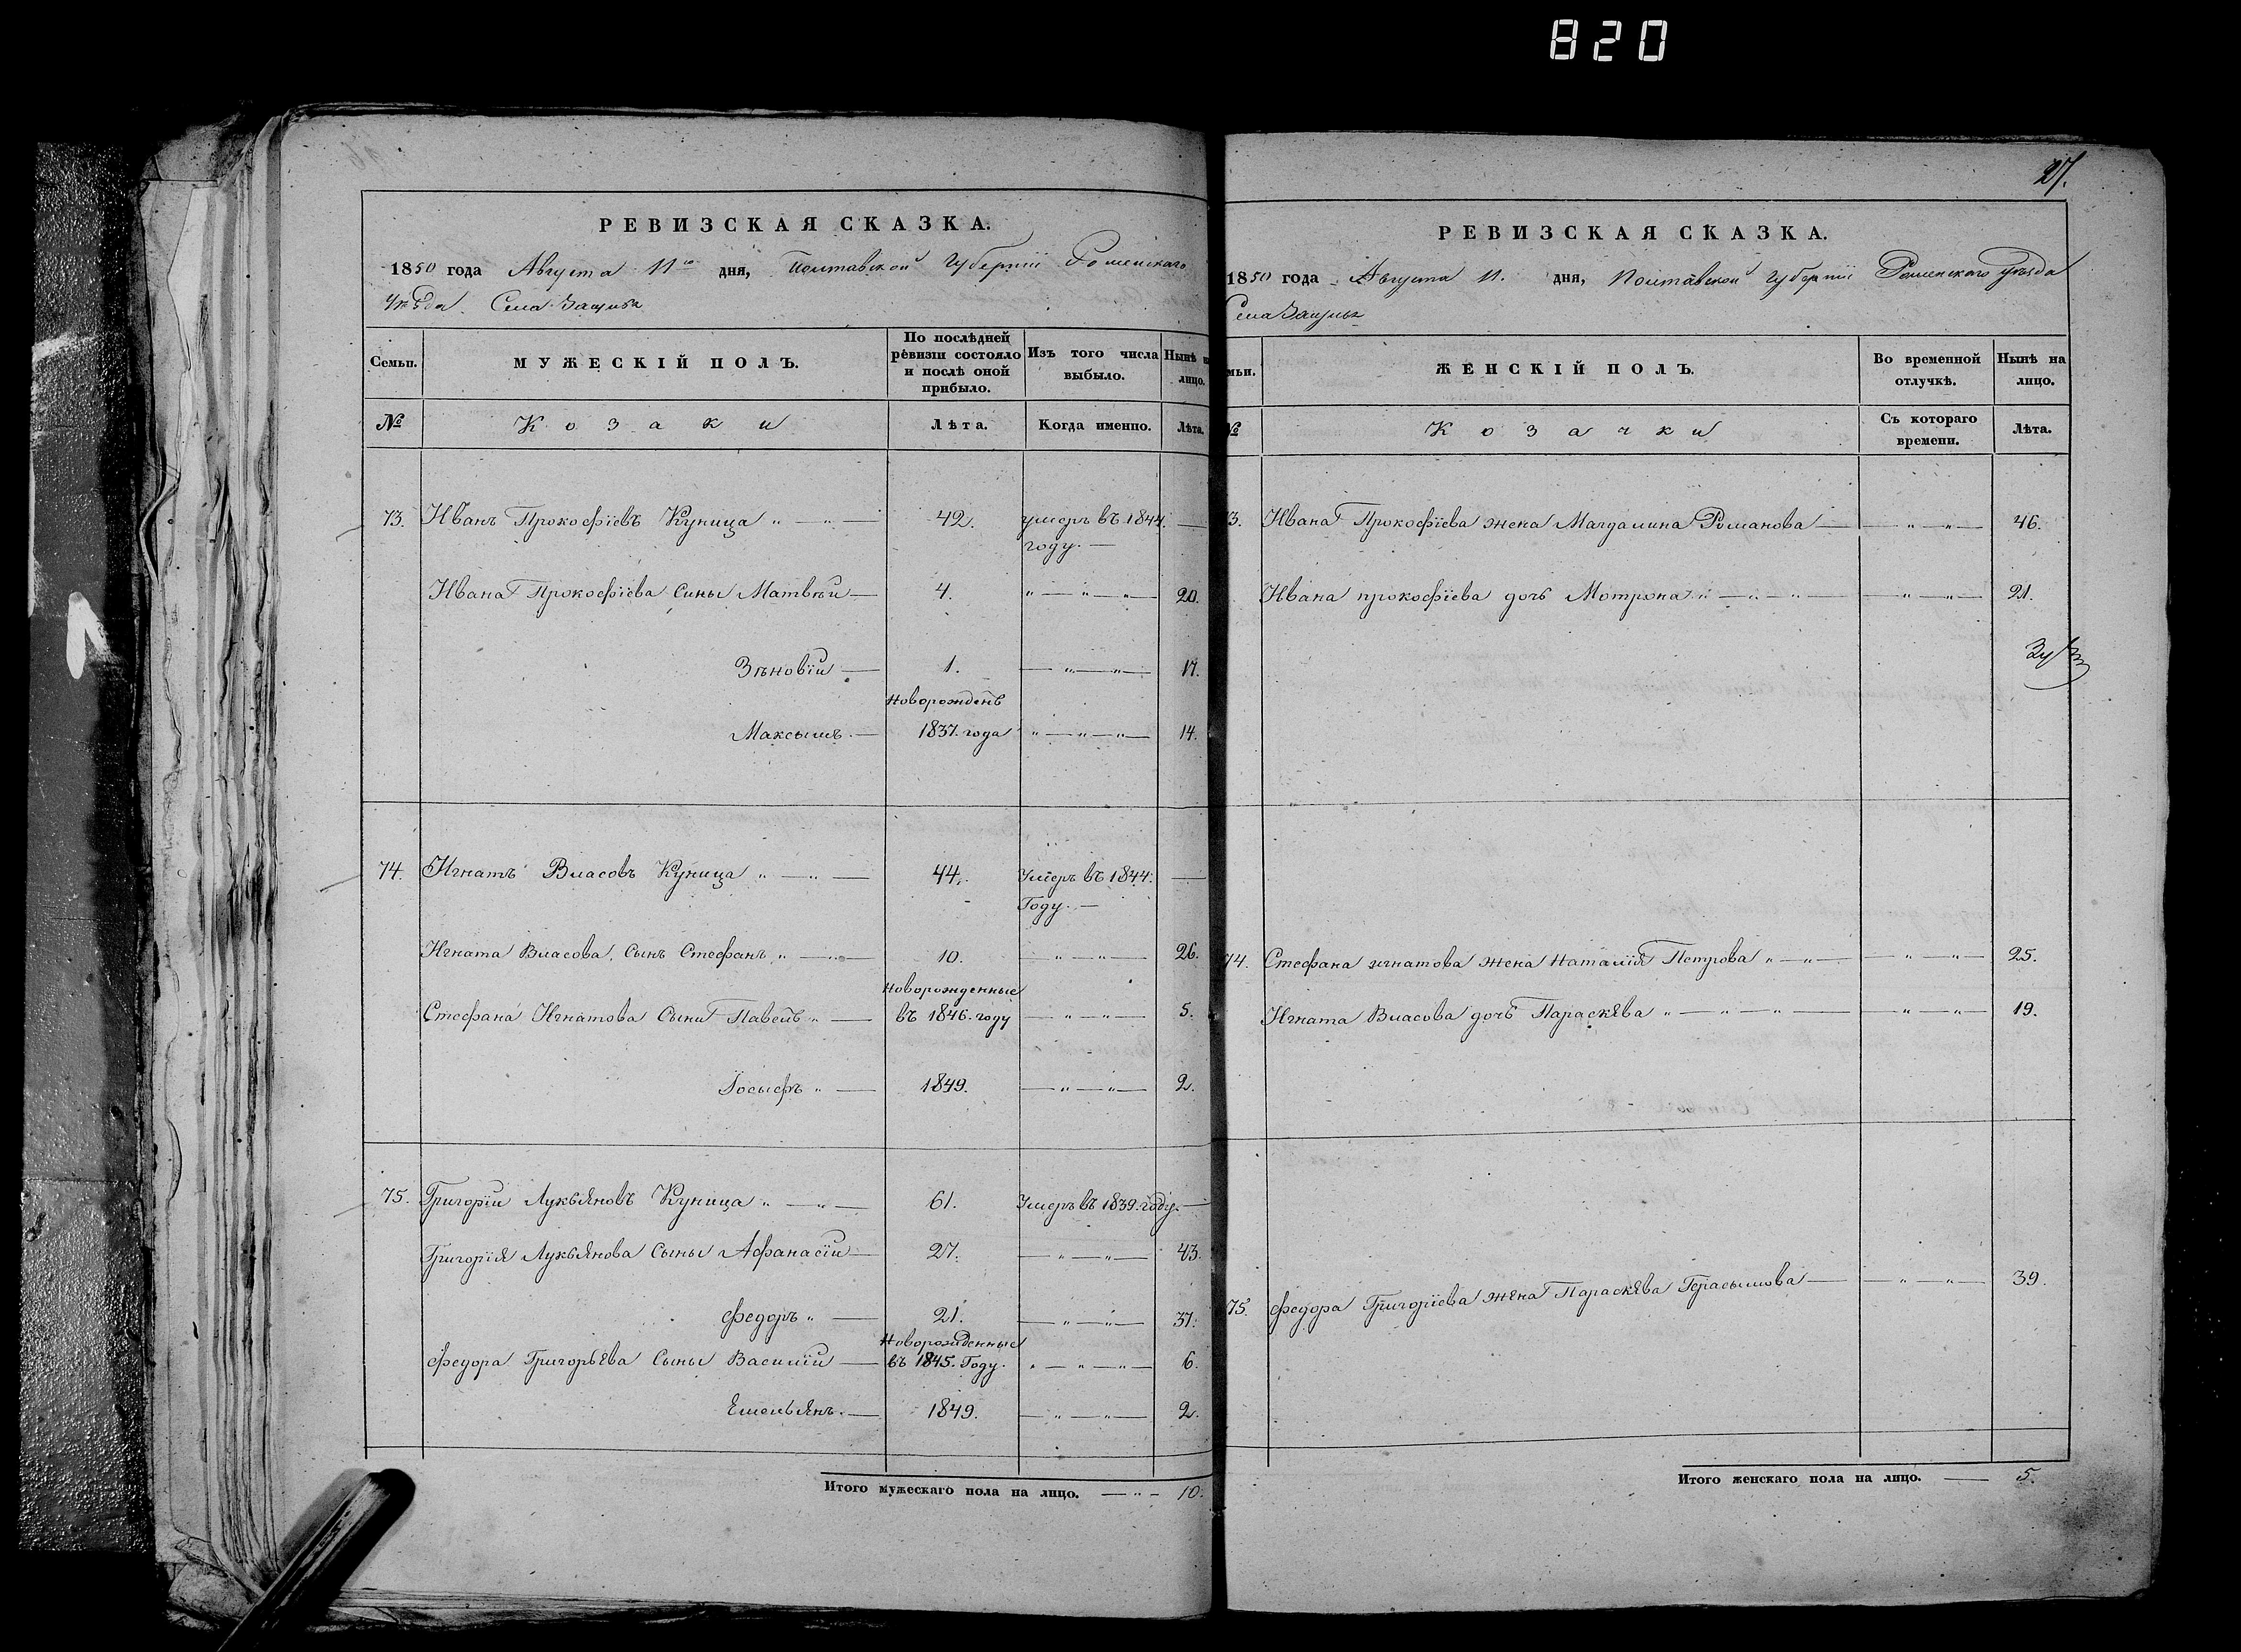 820
РЕВИЗСКАЯ СКАЗКА.
1850 года Августа 11го дня, Полтавской Губернии Роменскаго
уѣзда Села Защитъ
Семьи. МУЖЕСКІЙ ПОЛЪ. По послѣдней ревизіи состояло и послѣ оной прибыло. Изъ того числа выбыло. Нынѣ на лицо.
№ Козаки Лѣта. Когда именно. Лѣта.
73. Иванъ Прокофіевъ Куница „ — „ — 42. умеръ въ 1844. —
году. —
Ивана Прокофіева Сины Матвѣй — 4. „ — „ — „ — 20.
Зѣновій — 1. — „ — „ — 17.
Новорожденъ
Максымъ. — 1837. года „ — „ — „ — 14.
74. Игнатъ Власовъ Куница „ — „ — 44. Умеръ въ 1844. —
Году. —
Игната Власова, Сынъ Стефанъ „ — „ 10. — „ — „ — 26.
Новорожденные
Стефана Игнатова Сыни Павелъ „ — въ 1846. году — „ — „ — 5.
Іосыфъ „ — 1849. — „ — „ — 2.
75. Григорій Лукьяновъ Куница „ — „ — 61. Умеръ въ 1839. году. —
Григорія Лукьянова Сыны Афанасій — 27. — „ — „ — 43.
Федоръ „ — 21. — „ — „ — 37.
Новорожденные
Федора Григорьева Сыны Василій — въ 1845. Году. „ — „ — „ — 6.
Емельянъ. — 1849. — „ — „ — 2.
Итого мужескаго пола на лицо. — „ — 10.
27.
РЕВИЗСКАЯ СКАЗКА.
1850 года Августа 11. дня, Полтавской Губерніи Роменскаго уѣзда
Села Защитъ
мьи. ЖЕНСКІЙ ПОЛЪ. Во временной отлучкѣ. Нынѣ на лицо.
№ Козачки Съ котораго времени. Лѣта.
3. Ивана Прокофіева жена Магдалина Романова — — „ — „ — 46.
Ивана прокофіева дочь Мотрона „ — „ — „ — — „ — „ — 21.
74. Стефана игнатова жена Наталія Петрова „ — „ — — „ — „ — 25.
Игната Власова дочь Параскева „ — „ — „ — — „ — „ — 19.
75. Федора Григоріева жена Параскева Герасымова — — „ — „ — 39.
Итого женскаго пола на лицо. — 5.